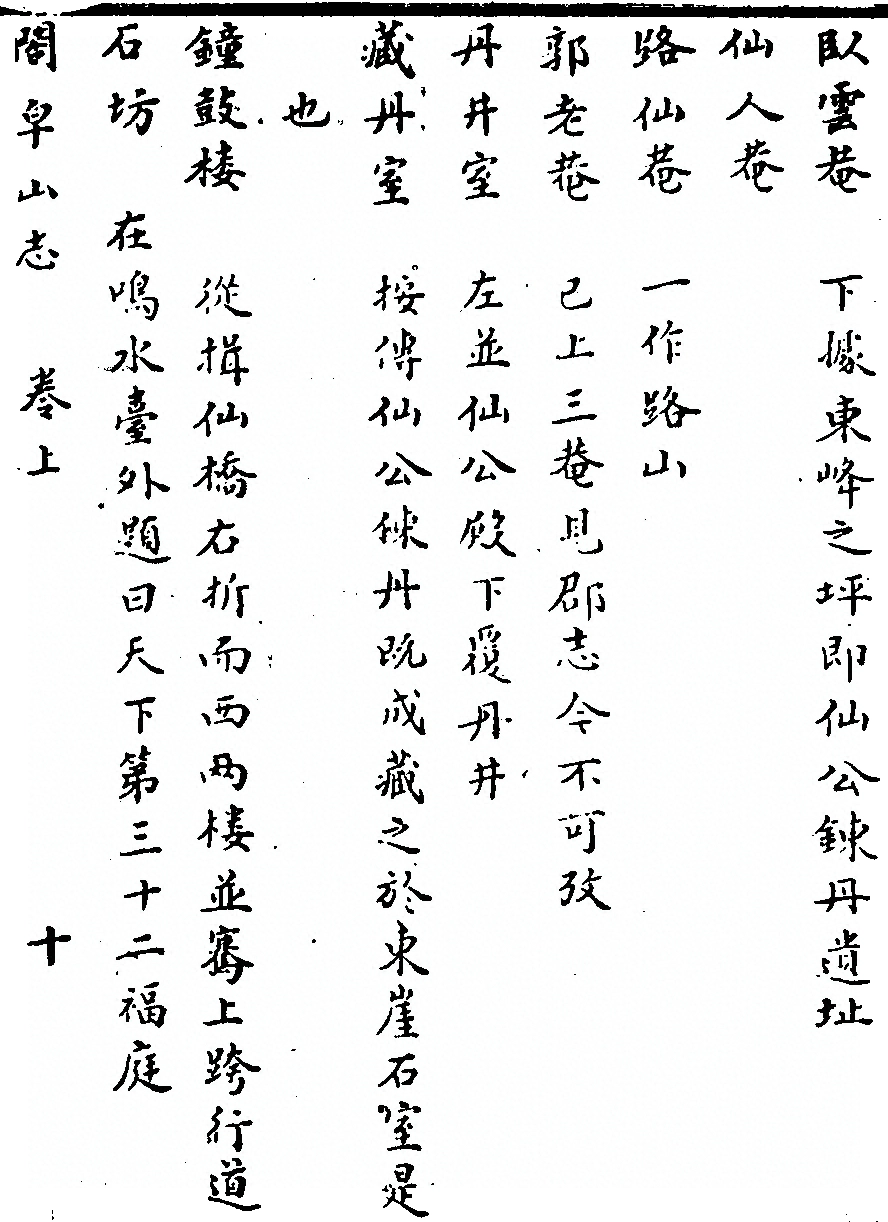 臥雲菴　下據東峰之坪即仙公鍊丹遺址
仙人菴
路仙菴　一作路山
郭老菴　已上三菴見郡志今不可攷
丹井室　左並仙公殿下覆丹井
藏丹室　按傅仙公鍊丹既成藏之於東崖石室是
也
鐘鼓楼　從揖仙橋右折而西两楼並騫上跨行道
石坊　在鳴水臺外題曰天下第三十二福庭
閤皁山志　卷上　十